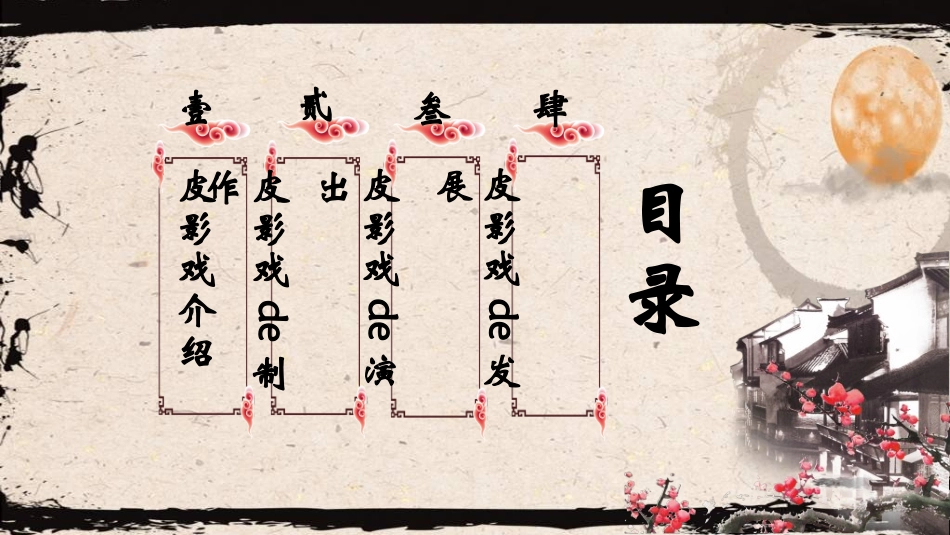 目录
壹
皮影戏介绍
贰
皮影戏de制
作
叁
皮影戏de演
出
肆
皮影戏de发
展